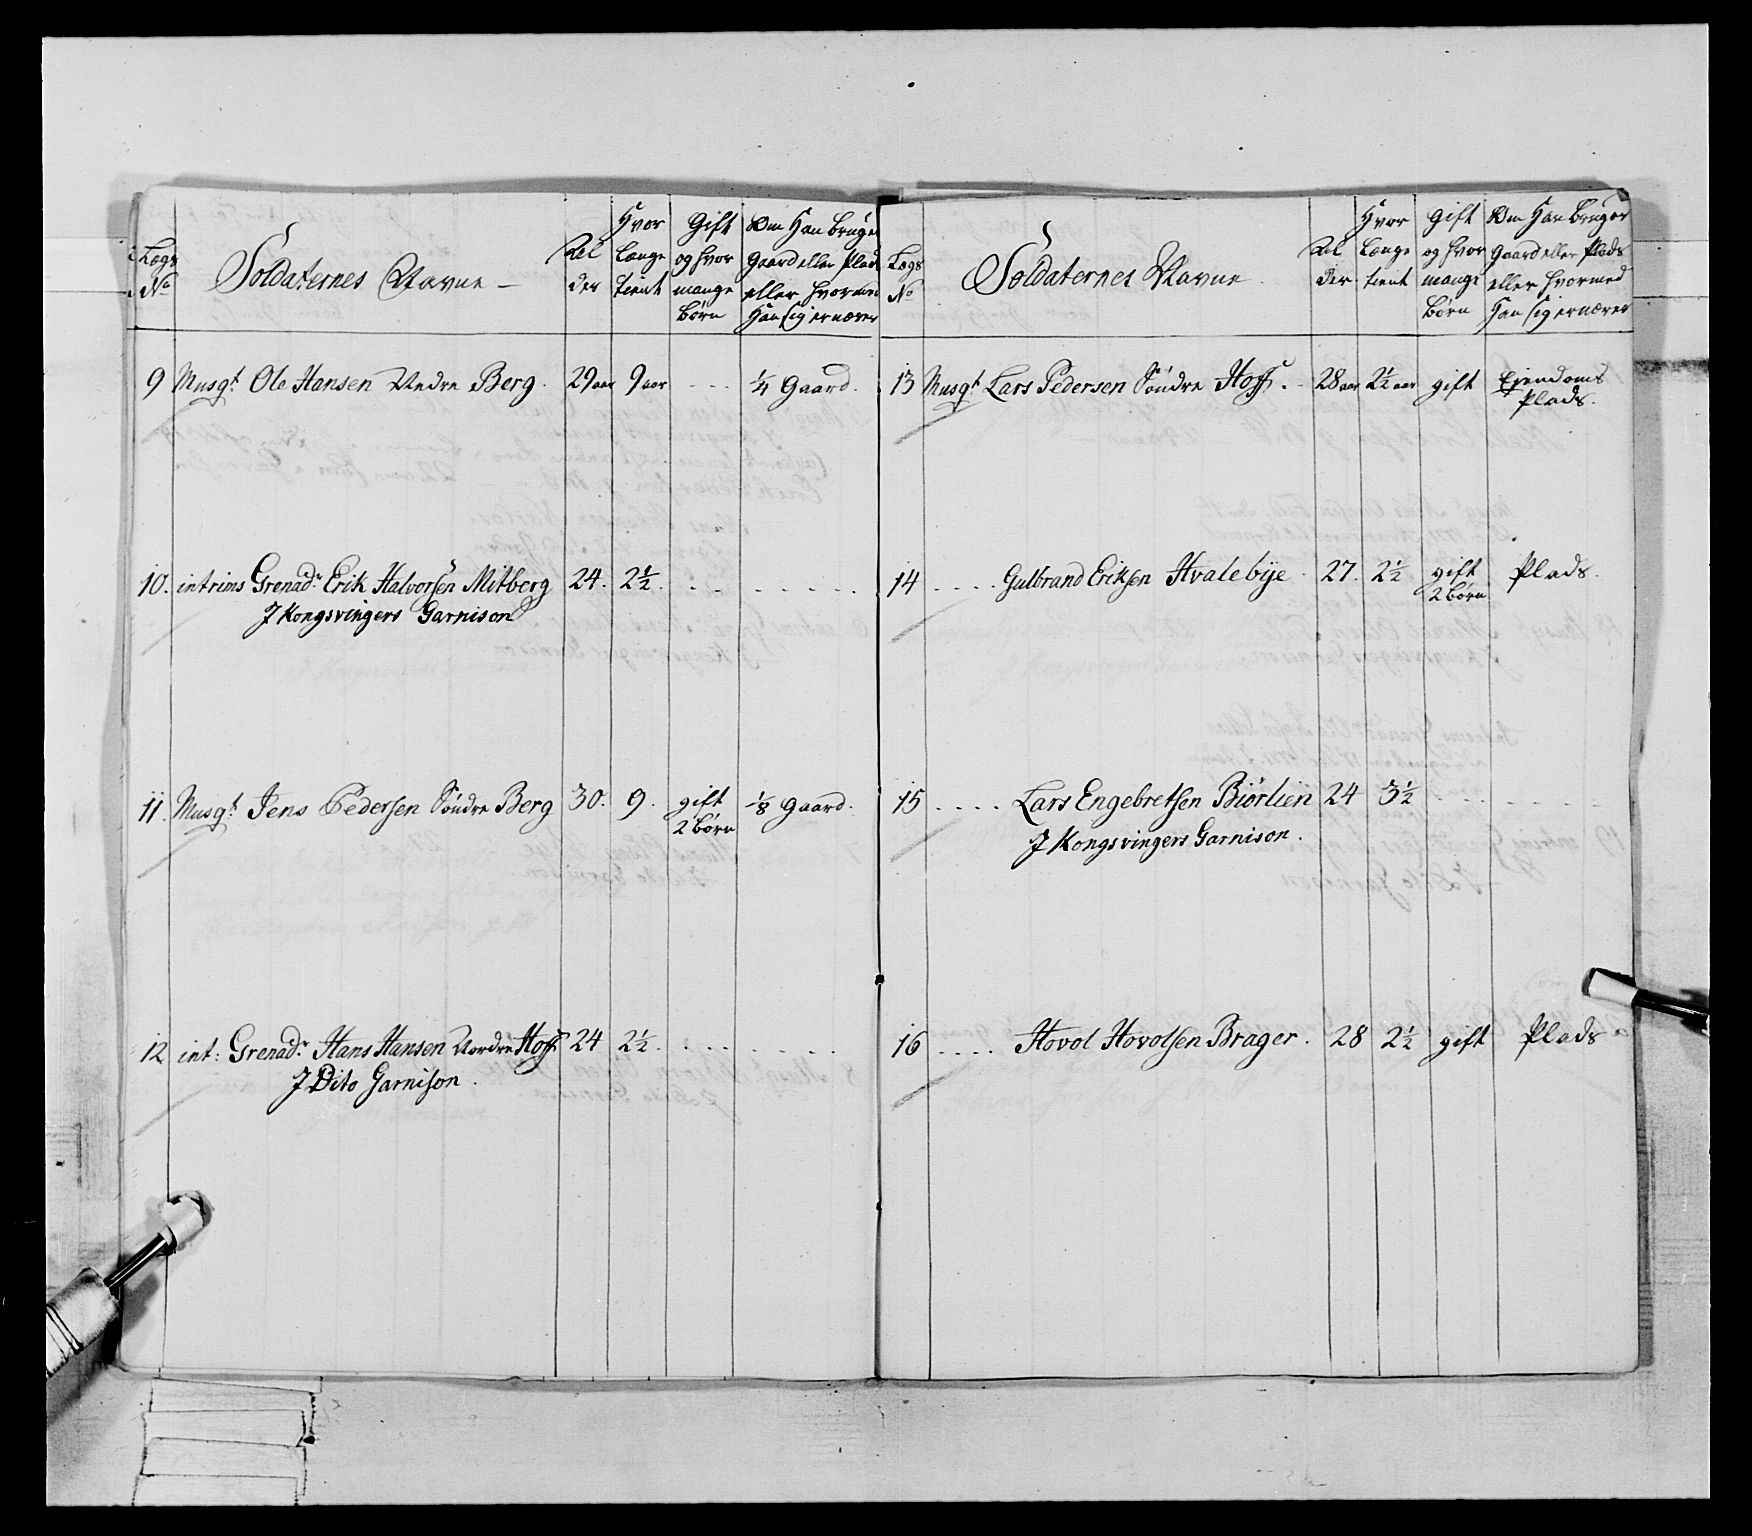 Lægs No
Soldaternes Navne
Alder
Hvor Længe tient
Gift og hvor mange Børn
Om Han bruger Gaard eller Plads eller hvormed Han sig ernærer
9 Musqt. Ole Hansen Nedre Berg. 29 aar 9 aar . . . ¼ Gaard.
10. intrims Grenadr. Erik Halvorsen Mitberg 24. 2½ . . . . . . . .
J Kongsvingers Garnison
11. Musqt. Jens Pedersen Söndre Berg 30. 9. gift 2 Børn ⅛ Gaard.
12 int: Grenadr. Hans Hansen Nordre Hoff 24 2½ . . . . . . .
J Dito Garnison.
Lægs No
Soldaternes Navne
Alder
Hvor Længe tient
Gift og hvor mange Børn
Om Han bruger Gaard eller Plads eller hvormed Han sig ernærer
13 Musqt Lars Pedersen Söndre Hoff. 28 aar 2½ aar gift Ejendoms Plads.
14 . . . . Gulbrand Eriksen Hvalebye 27. 2½ gift 2 Børn Plads.
15 . . . . Lars Engebretsen Biörlien 24 3½ . . . . . . .
J Kongsvingers Garnison.
16 . . . . Hovol Hovolsen Brager. 28 2½ gift Plads